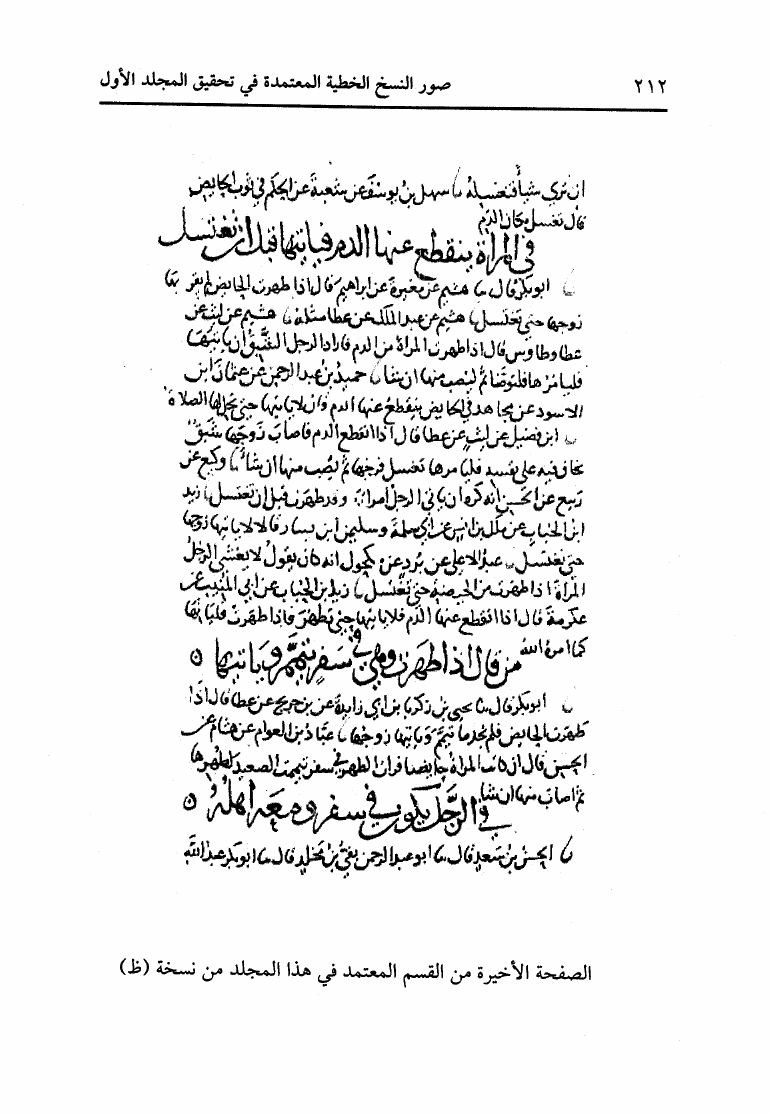 ٢١٢ صور النسخ الخطية المعتمدة في تحقيق المجلد الأول
ان تري شيا فتغسله سهل بن يوسف عن شعبة عن الحكم في ثوب الحايض
قال تغسل مكان الدم
في المراة ينقطع عنها الدم فياتيها قبل ان تغتسل
ابو بكر قال هشيم عن مغيرة عن ابراهيم قال اذا طهرت الحايض لم يقربها
زوجها حتى تغتسل هشيم عن عبد الملك عن عطا مثله هشيم عن ليث عن
عطا وطاوس قال اذا طهرت المراة من الدم فاراد الرجل الشبق ان ياتيها
فليامرها فلتوضا ثم ليصب منها ان شا حميد بن عبد الرحمن عن عثمان بن
الاسود عن مجاهد في الحايض ينقطع عنها الدم قال لا ياتيها حتى تحل لها الصلاة
ابن فضيل عن ليث عن عطا قال اذا انقطع الدم فاصاب زوجها شبق
يخاف فيه على نفسه فليامرها تغسل فرجها ثم يصيب منها ان شا وكيع عن
ربيع عن الحسن انه كره ان ياتي الرجل امراته وقد طهرت قبل ان تغتسل زيد
ابن الحباب عن ملك بن انس عن ابي سلمة وسليمن ابن يسار قالا لا ياتيها زوجها
حتى تغتسل عبد الاعلى عن برد عن مكحول انه كان يقول لا يغشى الرجل
المراة اذا طهرت من الحيضة حتى تغتسل زيد بن الحباب عن ابي المنيب عن
عكرمة قال اذا انقطع عنها الدم فلا ياتيها حتى تطهر فاذا طهرت فلياتها
كما امره الله
من قال اذا طهرت وهي في سفر تيمم وياتيها
ابو بكر قال يحيى بن زكريا بن ابي زايدة عن بن جريج عن عطا قال اذا
طهرت الحايض فلم تجد ما تيمم وياتيها زوجها عباد بن العوام عن هشام عن
الحسن قال ان كانت المراة حايضا فرات الطهر في سفر تيممت الصعيد لطهرها
ثم اصاب منها ان شا
في الرجل يكون في سفر ومعه اهله
الحسن بن سعد قال ابو عبد الرحمن بقي بن مخلد قال ابو بكر عبد الله
الصفحة الأخيرة من القسم المعتمد في هذا المجلد من نسخة (ظ)